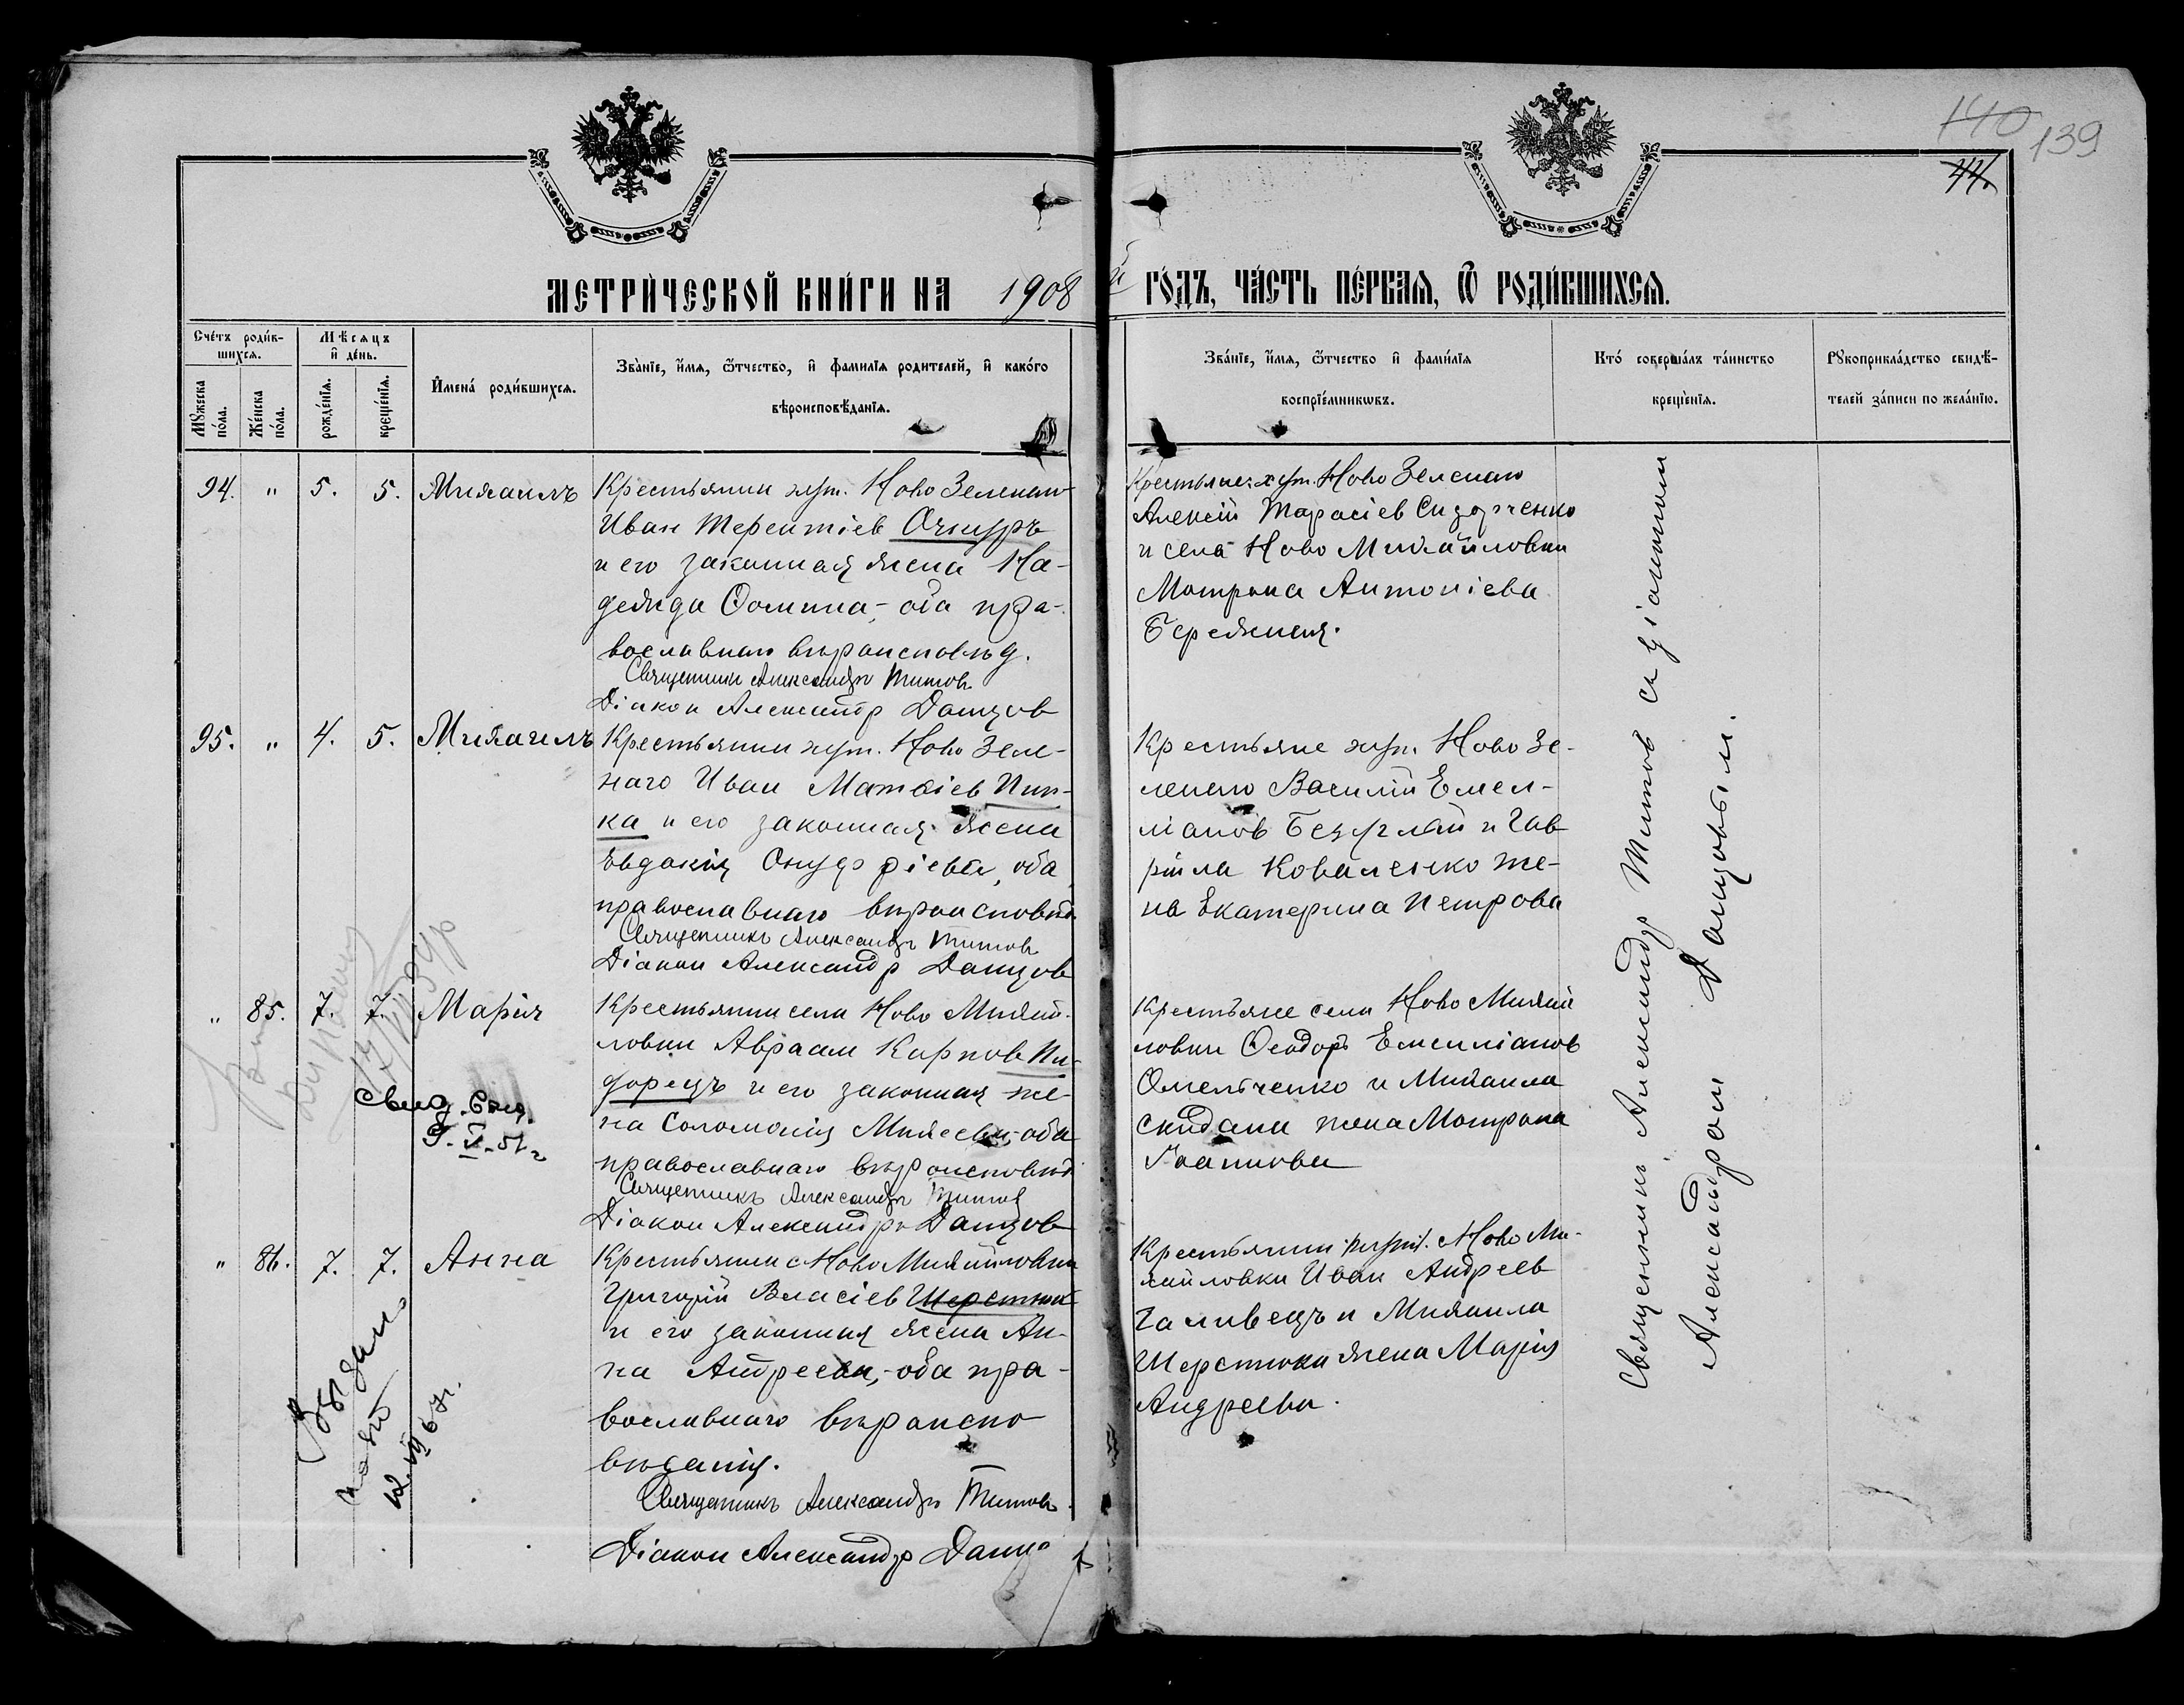 140 139
44.
МЕТРИЧЕСКОЙ КНИГИ НА 1908 й ГОДЪ, ЧАСТЬ ПЕРВАЯ, Ѿ РОДИВШИХСЯ.
Счетъ родив-
шихся.
Мужеска
пола.
Женска
пола.
Мѣсяцъ
и день.
рожденія.
крещенія.
Имена родившихся.
Званіе, имя, ѿтчество, и фамилія родителей, и какого
вѣроисповѣданія.
Званіе, имя, ѿтчество и фамилія
воспріемникѡвъ.
Кто совершалъ таинство
крещенія.
Рукоприкладство свидѣ-
телей записи по желанію.
94. " 5. 5. Михаилъ
Крестьянин хут. Ново Зеленаго
Иван Терентіев Очкуръ
и его законная жена На-
дежда Фомина, - оба пра-
вославнаго вѣроисповѣд.
Священникъ Александръ Титовъ
Діакон Александр Данцов
Крестьяне: хут. Ново Зеленаго
Алексій Тарасіев Сидорченко
и села Ново Михайловки
Матрона Антоніева
Бережная.
95. " 4. 5. Михаилъ
Крестьянин хут. Ново Зеле-
наго Иван Матвіев Пип-
ка и его законная жена
Евдокія Онуфріева, оба
православнаго вѣроисповѣд.
Священникъ Александръ Титовъ
Діакон Александр Данцов
Крестьяне хут. Ново Зе-
ленаго Василій Емел-
ліанов Безуглый и Гав-
ріила Коваленко же-
на Екатерина Петрова
" 85. 7. 7. Марія
Крестьянин села Ново Михай-
ловки Авраам Карпов
и его законная же-
на Соломонія оба
православнаго вѣроисповѣд
Священникъ Александръ Титовъ
Діакон Александръ Данцов
свид.
5.V.51г
Крестьяне села Ново Михай
ловки Феодоръ Емелліанов
Омельченко и Михаила
Скидана жена Матрона
" 86. 7. 7. Анна
Крестьянин с Ново Михайловки
Григорій Власіев Шерстюк
и его законная жена Ан-
на Андреева, - оба пра-
вославнаго вѣроиспо
вѣданія.
Священникъ Александръ Титовъ.
Діакон Александр Данцо
Выдано
67г.
Крестьянин Ново Ми-
хайловки Иван Андреев
Галивецъ и Михаила
Шерстюка жена Марія
Андреева.
Священникъ Александр Титов съ діаконом
Александром Данцовым.